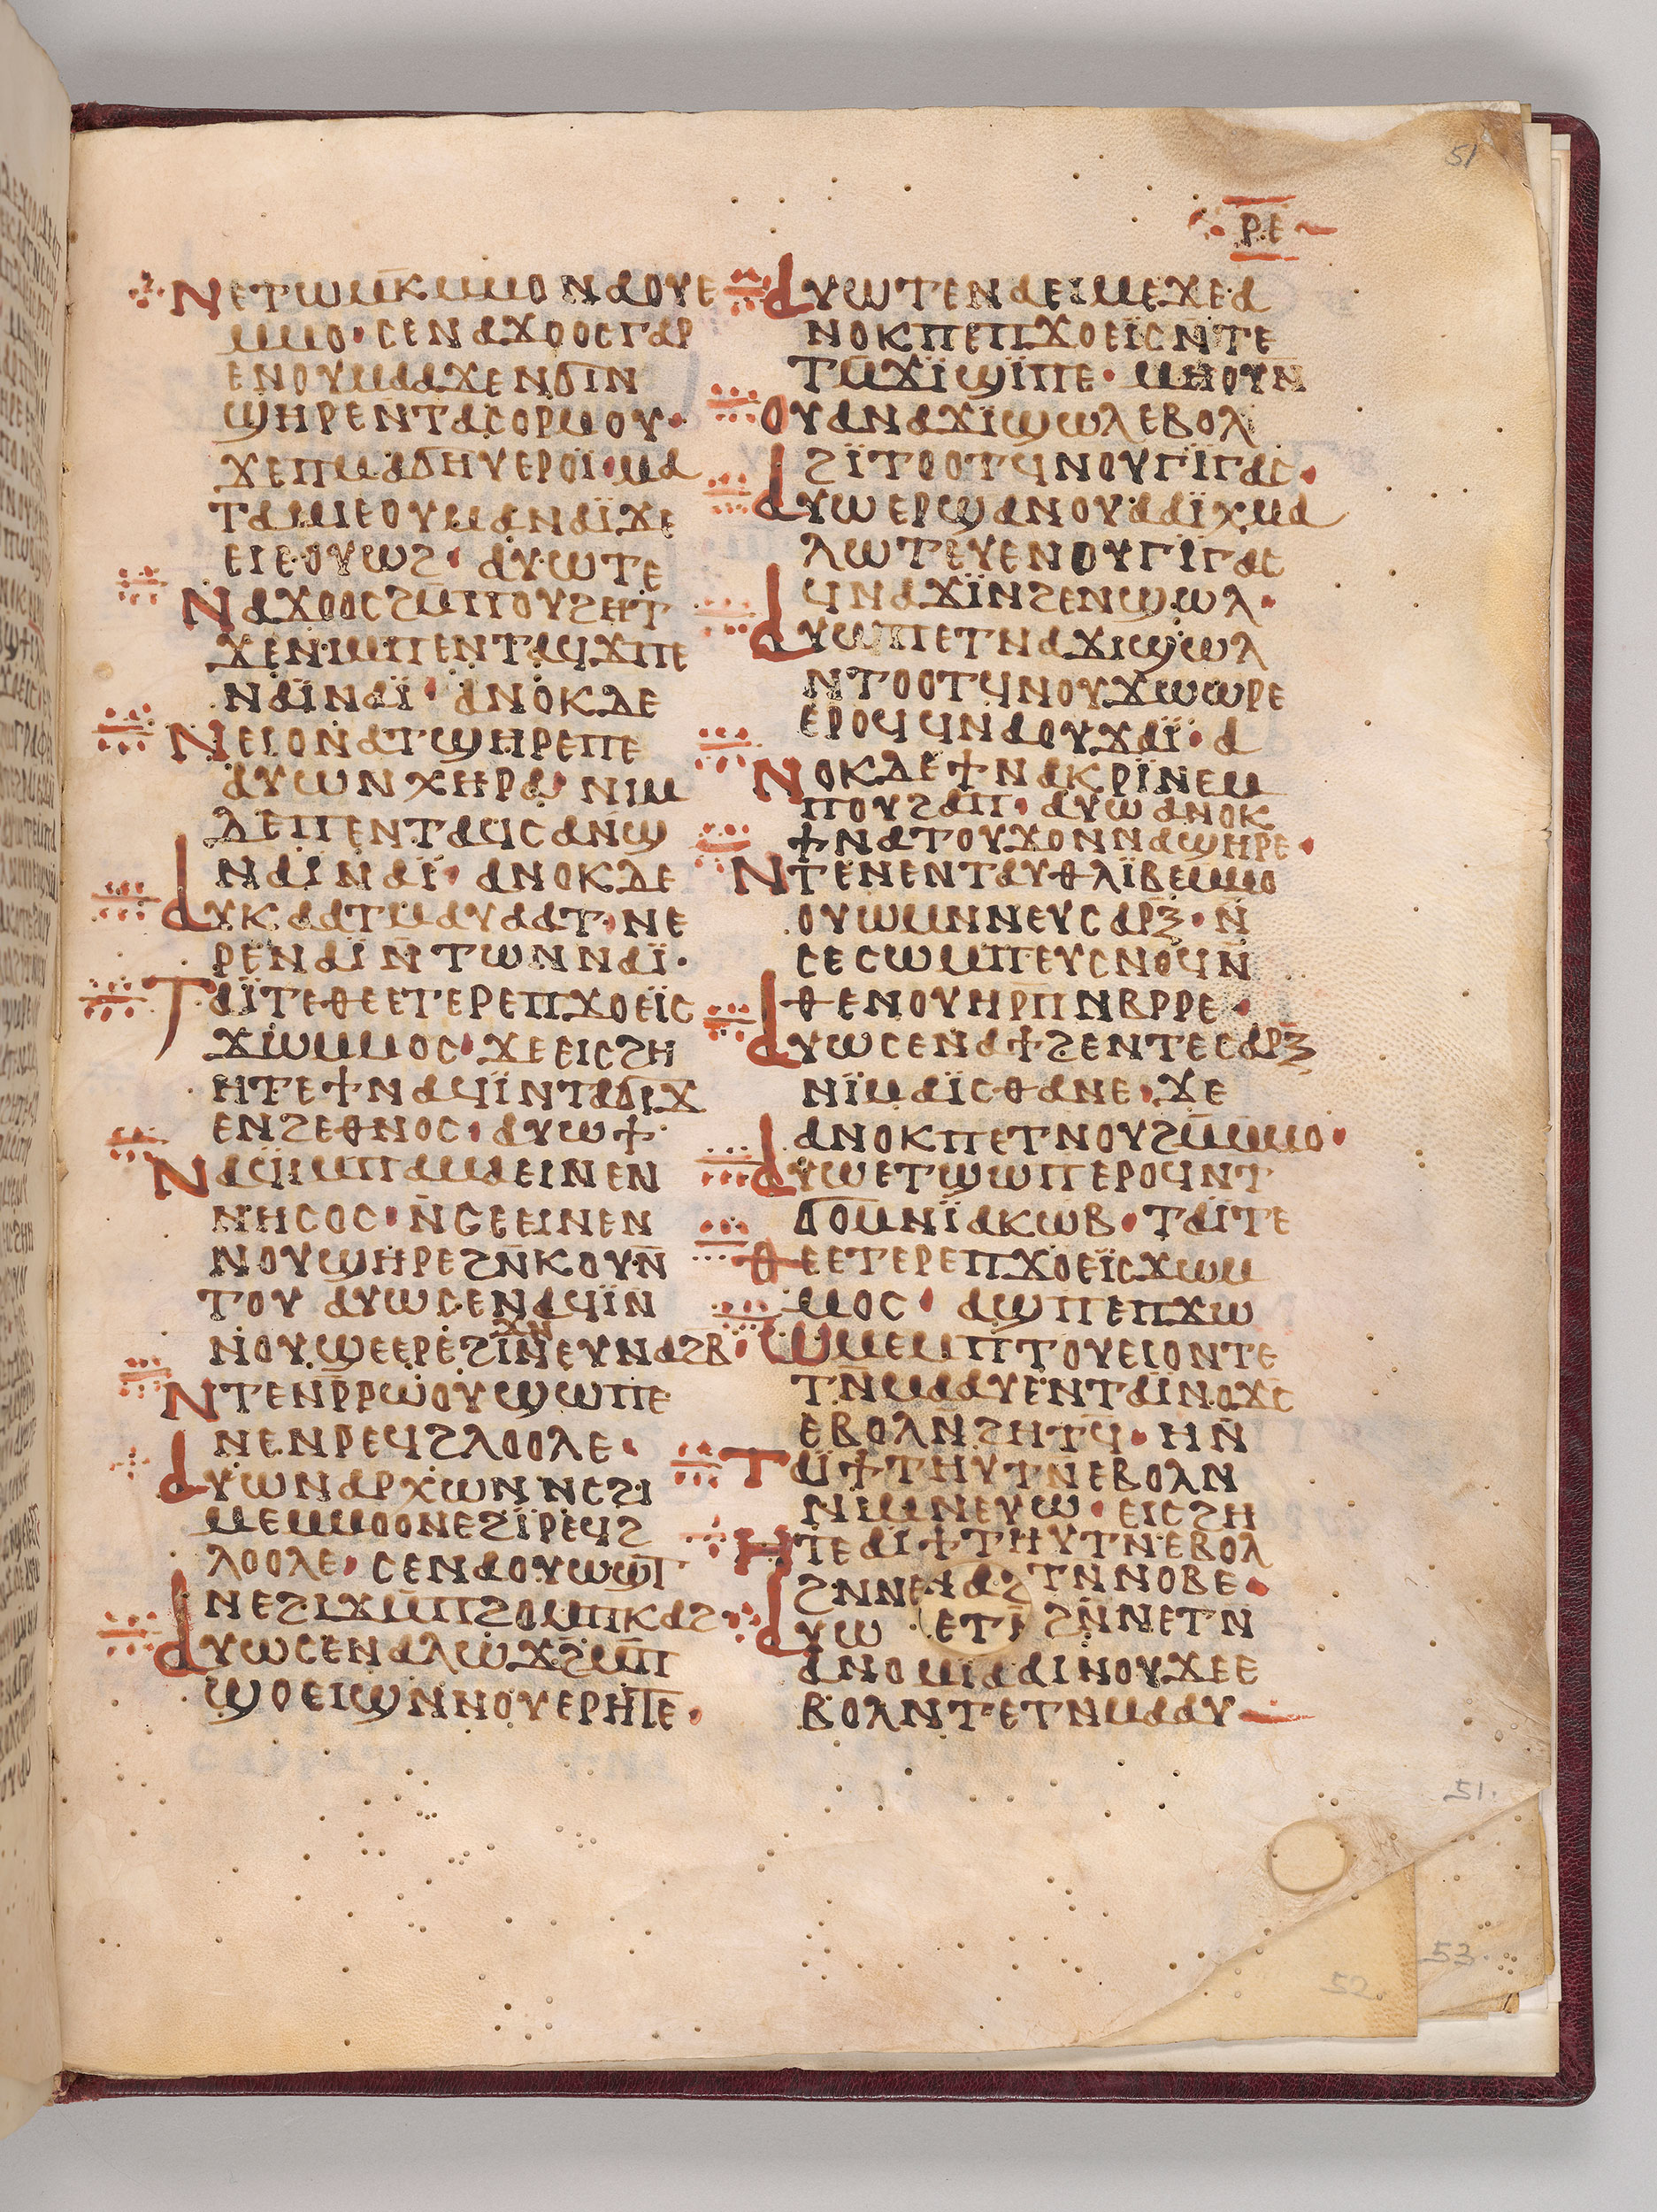 51
ⲣⲉ
ⲛⲉⲧⲱⲙ̄ⲕ ⲙ̄ⲙⲟ ⲛⲁⲟⲩⲉ
ⲙⲙⲟ· ⲥⲉⲛⲁϫⲟⲟⲥ ⲅⲁⲣ
ⲉⲛⲟⲩⲙⲁⲁϫⲉ ⲛϭⲓⲛ
ϣⲏⲣⲉ ⲛⲧⲁⲥⲟⲣⲙⲟⲩ·
ϫⲉ ⲡⲙⲁ ϭⲏⲩ ⲉⲣⲟⲓ̈· ⲙⲁ
ⲧⲁⲙⲓⲉ ⲟⲩⲙⲁ ⲛⲁⲓ̈ ϫⲉ
ⲉⲓⲉⲟⲩⲱϩ· ⲁⲩⲱ ⲧⲉ
ⲛⲁϫⲟⲟⲥ ϩⲙ̄ ⲡⲟⲩϩⲏⲧ
ϫⲉ ⲛⲓⲙ ⲡⲉⲛⲧⲁϥϫⲡⲉ
ⲛⲁⲓ̈ ⲛⲁⲓ̈· ⲁⲛⲟⲕ ⲇⲉ
ⲛⲉⲓⲟ ⲛⲁⲧϣⲏⲣⲉ ⲡⲉ
ⲁⲩⲱ ⲛⲭⲏⲣⲁ· ⲛⲓⲙ
ⲇⲉ ⲡⲉⲛⲧⲁϥⲥⲁⲛϣ
ⲛⲁⲓ ⲛⲁⲓ̈· ⲁⲛⲟⲕ ⲇⲉ
ⲁⲩⲕⲁⲁⲧ ⲙⲁⲩⲁⲁⲧ· ⲛⲉ
ⲣⲉ ⲛⲁⲓ ⲛ̄ⲧⲱⲛ ⲛⲁⲓ̈·
ⲧⲁⲓ̈ ⲧⲉ ⲑⲉ ⲉⲧⲉⲣⲉ ⲡϫⲟⲉⲓ̈ⲥ
ϫⲱ ⲙⲙⲟⲥ· ϫⲉ ⲉⲓⲥ ϩⲏ
ⲏⲧⲉ ϯⲛⲁϥⲓ̈ ⲛⲧⲁϭⲓϫ
ⲉⲛϩⲉⲑⲛⲟⲥ· ⲁⲩⲱ ϯ
ⲛⲁϥⲓ ⲙⲡⲁⲙⲁⲉⲓⲛ ⲉⲛ
ⲛⲏⲥⲟⲥ· ⲛ̄ⲥⲉⲉⲓⲛⲉ ⲛ
ⲛⲟⲩϣⲏⲣⲉ ϩⲛ̄ ⲕⲟⲩⲛ̄
ⲧⲟⲩ ⲁⲩⲱ ⲥⲉⲛⲁϥⲓ̈ ⲛ
ⲛⲟⲩϣⲉⲉⲣⲉ ϩⲓϫⲛ ⲛⲉⲩⲛⲁϩⲃ
ⲛⲧⲉ ⲛ̄ⲣⲣⲱⲟⲩ ϣⲱⲡⲉ
ⲛⲉ ⲛⲣⲉϥϩⲗⲟⲟⲗⲉ·
ⲁⲩⲱ ⲛⲁⲣⲭⲱⲛ ⲛⲉϩⲓ
ⲙⲉ ⲙⲙⲟⲟⲛⲉ ϩⲓ̈ ⲣⲉϥϩ
ⲗⲟⲟⲗⲉ· ⲥⲉⲛⲁⲟⲩⲱϣⲧ
ⲛⲉ ϩⲓϫⲙ̄ ⲡϩⲟ ⲙⲡⲕⲁϩ
ⲁⲩⲱ ⲥⲉⲛⲁⲗⲱϫϩ ⲙ̄ⲡ
ϣⲟⲉⲓϣ ⲛⲛⲟⲩⲉⲣⲏⲧⲉ·
ⲁⲩⲱ ⲧⲉⲛⲁⲉⲓⲙⲉ ϫⲉ ⲁ
ⲛⲟⲕ ⲡⲉ ⲡϫⲟⲉⲓ̈ⲥ ⲛ̄ⲧⲉ
ⲧⲙ̄ϫⲓ̈ϣⲓ̈ⲡⲉ· ⲙⲏ ⲟⲩⲛ̄
ⲟⲩⲁ ⲛⲁϫⲓϣⲱⲗ ⲉⲃⲟⲗ
ϩⲓ̈ⲧⲟⲟⲧϥ ⲛⲟⲩⲅⲓ̈ⲅⲁⲥ·
ⲁⲩⲱ ⲉⲣϣⲁⲛ ⲟⲩⲁ ⲁⲓ̈ⲭⲙⲁ
ⲗⲱⲧⲉⲩⲉ ⲛⲟⲩⲅⲓⲅⲁⲥ
ϥⲛⲁϫⲓ̈ ⲛϩⲉⲛϣⲱⲗ·
ⲁⲩⲱ ⲡⲉⲧⲛⲁϫⲓϣⲱⲗ
ⲛⲧⲟⲟⲧϥ ⲛⲟⲩϫⲱⲱⲣⲉ
ⲉⲣⲟϥ ϥⲛⲁⲟⲩϫⲁⲓ̈· ⲁ
ⲛⲟⲕ ⲇⲉ ϯⲛⲁⲕⲣⲓ̈ⲛⲉ ⲙ
ⲡⲟⲩϩⲁⲡ· ⲁⲩⲱ ⲁⲛⲟⲕ
ϯⲛⲁⲧⲟⲩϫⲟ ⲛⲛⲁϣⲏⲣⲉ·
ⲛⲧⲉ ⲛⲉⲛⲧⲁⲩⲑⲗⲓ̈ⲃⲉ ⲙⲙⲟ
ⲟⲩⲱⲙ ⲛⲛⲉⲩⲥⲁⲣⲝ· ⲛ̄
ⲥⲉⲥⲱ ⲙⲡⲉⲩⲥⲛⲟϥ ⲛ̄
ⲑⲉ ⲛⲟⲩⲏⲣⲡ ⲛⲃⲣⲣⲉ·
ⲁⲩⲱ ⲥⲉⲛⲁϯϩⲉ ⲛⲧⲉⲥⲁⲣⲝ
ⲛⲓ̈ⲙ ⲁⲓ̈ⲥⲑⲁⲛⲉ· ϫⲉ
ⲁⲛⲟⲕ ⲡⲉⲧⲛⲟⲩϩⲙ̄ ⲙⲙⲟ·
ⲁⲩⲱ ⲉⲧϣⲱⲡ ⲉⲣⲟϥ ⲛⲧ
ϭⲟⲙ ⲛⲓ̈ⲁⲕⲱⲃ· ⲧⲁⲓ̈ ⲧⲉ
ⲑⲉ ⲉⲧⲉⲣⲉ ⲡϫⲟⲉⲓ̈ⲥ ϫⲱ ⲙ
ⲙⲟⲥ· ⲁϣ ⲡⲉ ⲡϫⲱ
ⲱⲙⲉ ⲙⲡⲧⲟⲩⲉⲓⲟ ⲛⲧⲉ
ⲧⲛ̄ⲙⲁⲁⲩ ⲉⲛⲧⲁⲓⲛⲟϫⲥ
ⲉⲃⲟⲗ ⲛ̄ϩⲏⲧϥ̄· ⲏ ⲛ̄
ⲧⲁⲓ̈ϯ ⲧⲏⲩⲧⲛ ⲉⲃⲟⲗ ⲛ
ⲛⲓⲙ ⲛⲉⲩⲱ· ⲉⲓⲥ ϩⲏ
ⲏⲧⲉ ⲁⲓϯ ⲧⲏⲩⲧⲛ ⲉⲃⲟⲗ
ϩⲛ ⲛⲉ ⲧⲛⲛⲟⲃⲉ·
ⲁⲩⲱ ⲉⲧ ϩⲛ̄ ⲛⲉⲧⲛ
ⲁⲛⲟⲙⲓⲁ ⲁⲓⲛⲟⲩϫⲉ ⲉ
ⲃⲟⲗ ⲛⲧⲉⲧⲛⲙⲁⲁⲩ
51.
53.
52.